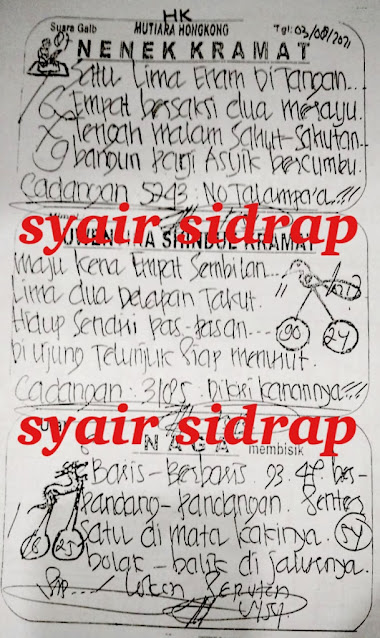 HK
Suara Gaib MUTIARA HONGKONG Tgl: 03/08/2021
NENEK KRAMAT
Satu Lima Enam Di Tangan...
Empat bersaksi dua merayu.
Tengah malam Sahut-Sahutan
bangun pagi Asyik bercumbu.
Cadangan 5243. No Talampa'a.!!!
syair sidrap
KRAMAT
maju kena Empat Sembilan...
Lima dua Delapan Takut.
Hidup Sendiri pas-pasan---
Di Ujung Telunjuk Siap menurut.
90 24
Cadangan : 3105. Dibiri Kanannya!!!
syair sidrap
NAGA membisik
Baris-Berbaris. 93. 48 ber-
pandang-pandangan.
Satu di mata kakinya. 54
bolak-balik di jalurnya.
25